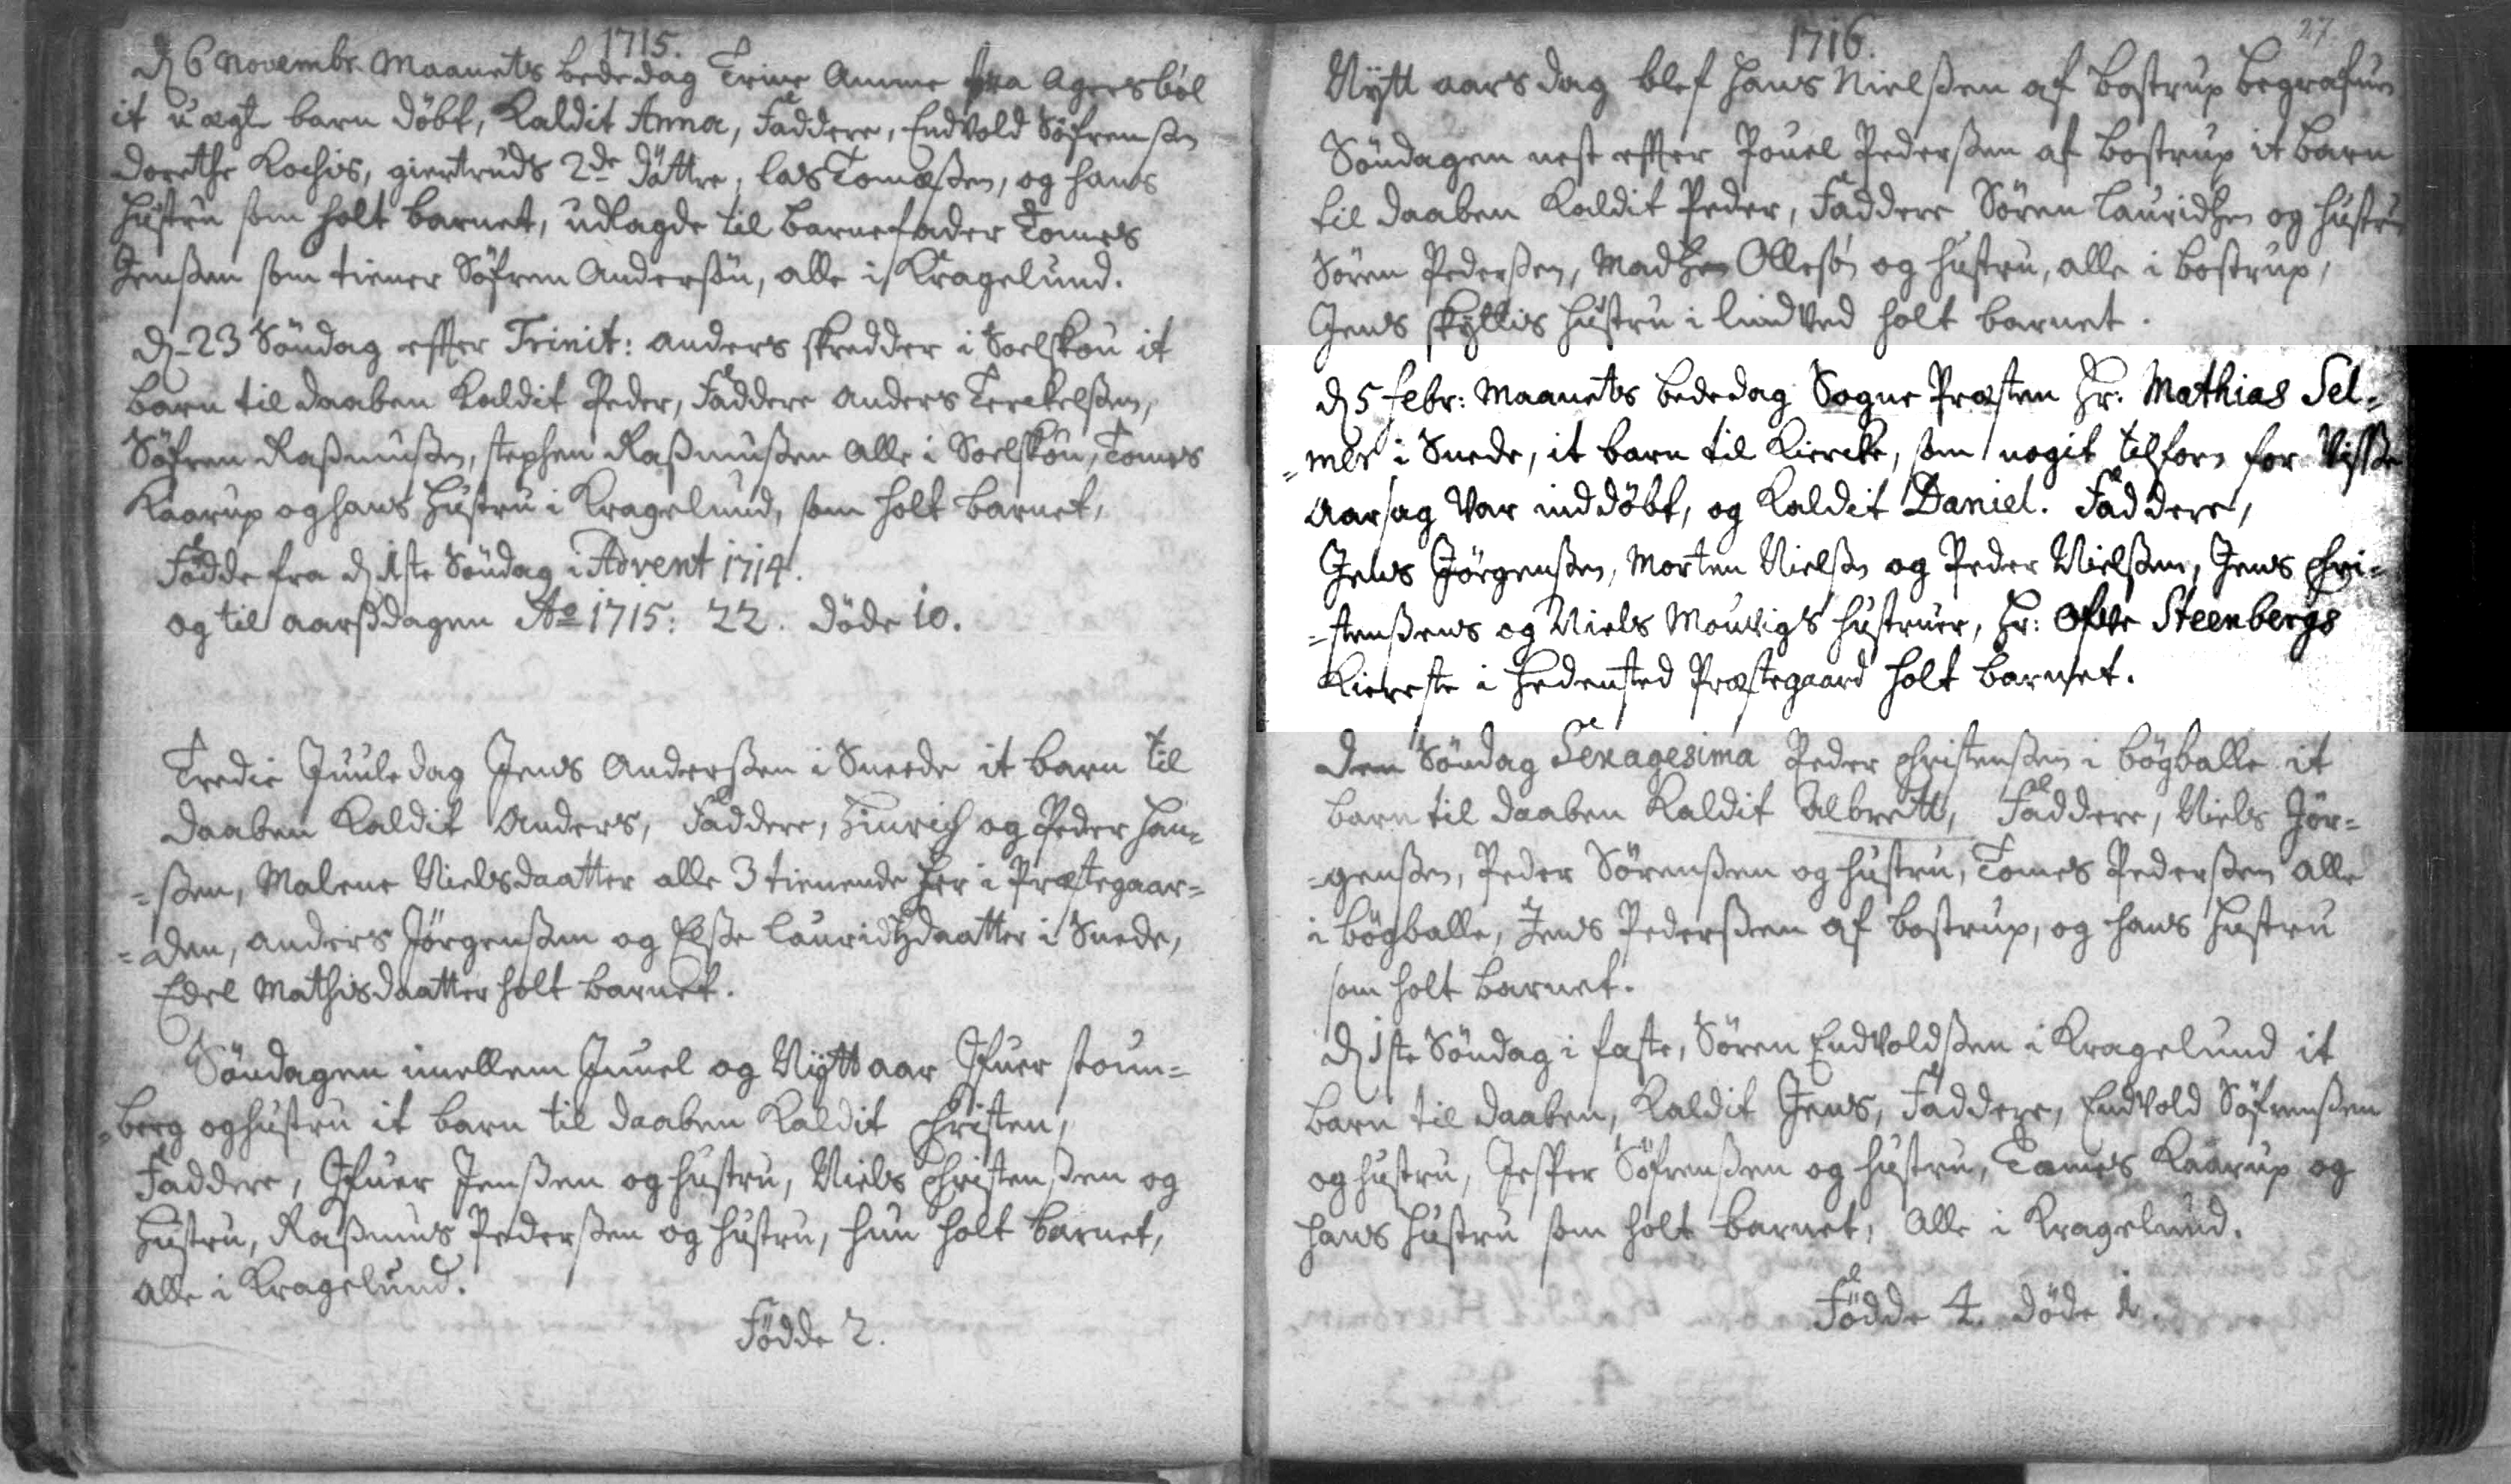 1715.
D 6 Novembr. Maanets bededag Trine Amme fra Agersböl
it uægte barn döbt, kaldit Anna, Faddere, Endvold Söfrensen
Dorethe Kochis, giertruds 2de döttre, Las Tomæßen, og hans
hustru som holt barnet, udlagde til barnefader Tomes
Jenßen som tiener Söfren Andersön, alle i Kragelund.
D. 23 Söndag effter Trinit: Anders skredder i Soelskou it
barn til daaben kaldit Peder, Faddere Anders Terckelßen,
Söfren Raßmußen, Stephen Raßmußen alle i Soelskou, Tomes
Kaarup og hans hustru i Kragelund, som holt barnet,
Födde fra d 1ste Söndag i Advent 1714.
og til aarßdagen Ao 1715: 22. döde 10.
Tredie Juule dag Jens Anderßen i Sneede it barn til
daaben kaldit Anders, Faddere, Hinrich og Peder Han=
=ßen, Malene Nielsdaatter alle 3 tienende her i Præstegaar=
=den, Anders Jörgenßen og Elße Lauridtzdaatter i Snede,
Edel Mathisdaatter holt barnet.
Söndagen imellem Juuel og Nytt aar Ifuer stoun=
=berg og hustru it barn til daaben kaldit Christen,
Faddere, Ifuer Jenßen og hustru, Niels Christenßen og
hustru, Raßmus Pederßen og hustru, hun holt barnet,
alle i Kragelund.
Födde 2.
1716.
27
Nytt aars dag blef Hans Nielßen af Bostrup begrafuen
Söndagen nest effter Pouel Pederßen af Bostrup it barn
til daaben kaldit Peder, Faddere Sören Lauridßen og hustru
Sören Pederßen, Madtzen Ollesön og hustru, alle i Bostrup,
Jens skyttis hustru i Lindved holt barnet.
D 5 Febr: Maanets bededag Sogne Præsten Hr. Mathias Sel=
=mer i Snede, it barn til Kiercke, som nogit tilforn for Visse
Aarsag Var inddöbt, og kaldit Daniel. Faddere,
Jens Jörgenßen, Morten Nielßen og Peder Nielßen, Jens Chri=
=stenßens og Niels Mouvigs hustruer, Hr: Steenbergs
Kiereste i Hedensted Præstegaard holt barnet.
Den Söndag Sexagesima Peder Christenßen i Bögballe it
barn til daaben kaldit Albrett, Faddere, Niels Jör=
=genßen, Peder Sörenßen og hustru, Tomes Pederßen alle
i Bögballe, Jens Pederßen af Bostrup, og hans hustru
som holt barnet.
D 1ste Söndag i faste, Sören Endvoldßen i Kragelund it
barn til daaben, kaldit Jens, Faddere, Endvold Söfrenßen
og hustru, Jesper Söfrenßen og hustru, Tomes Kaarup og
hans hustru som holt barnet, alle i Kragelund.
Födde 4. döde 1.